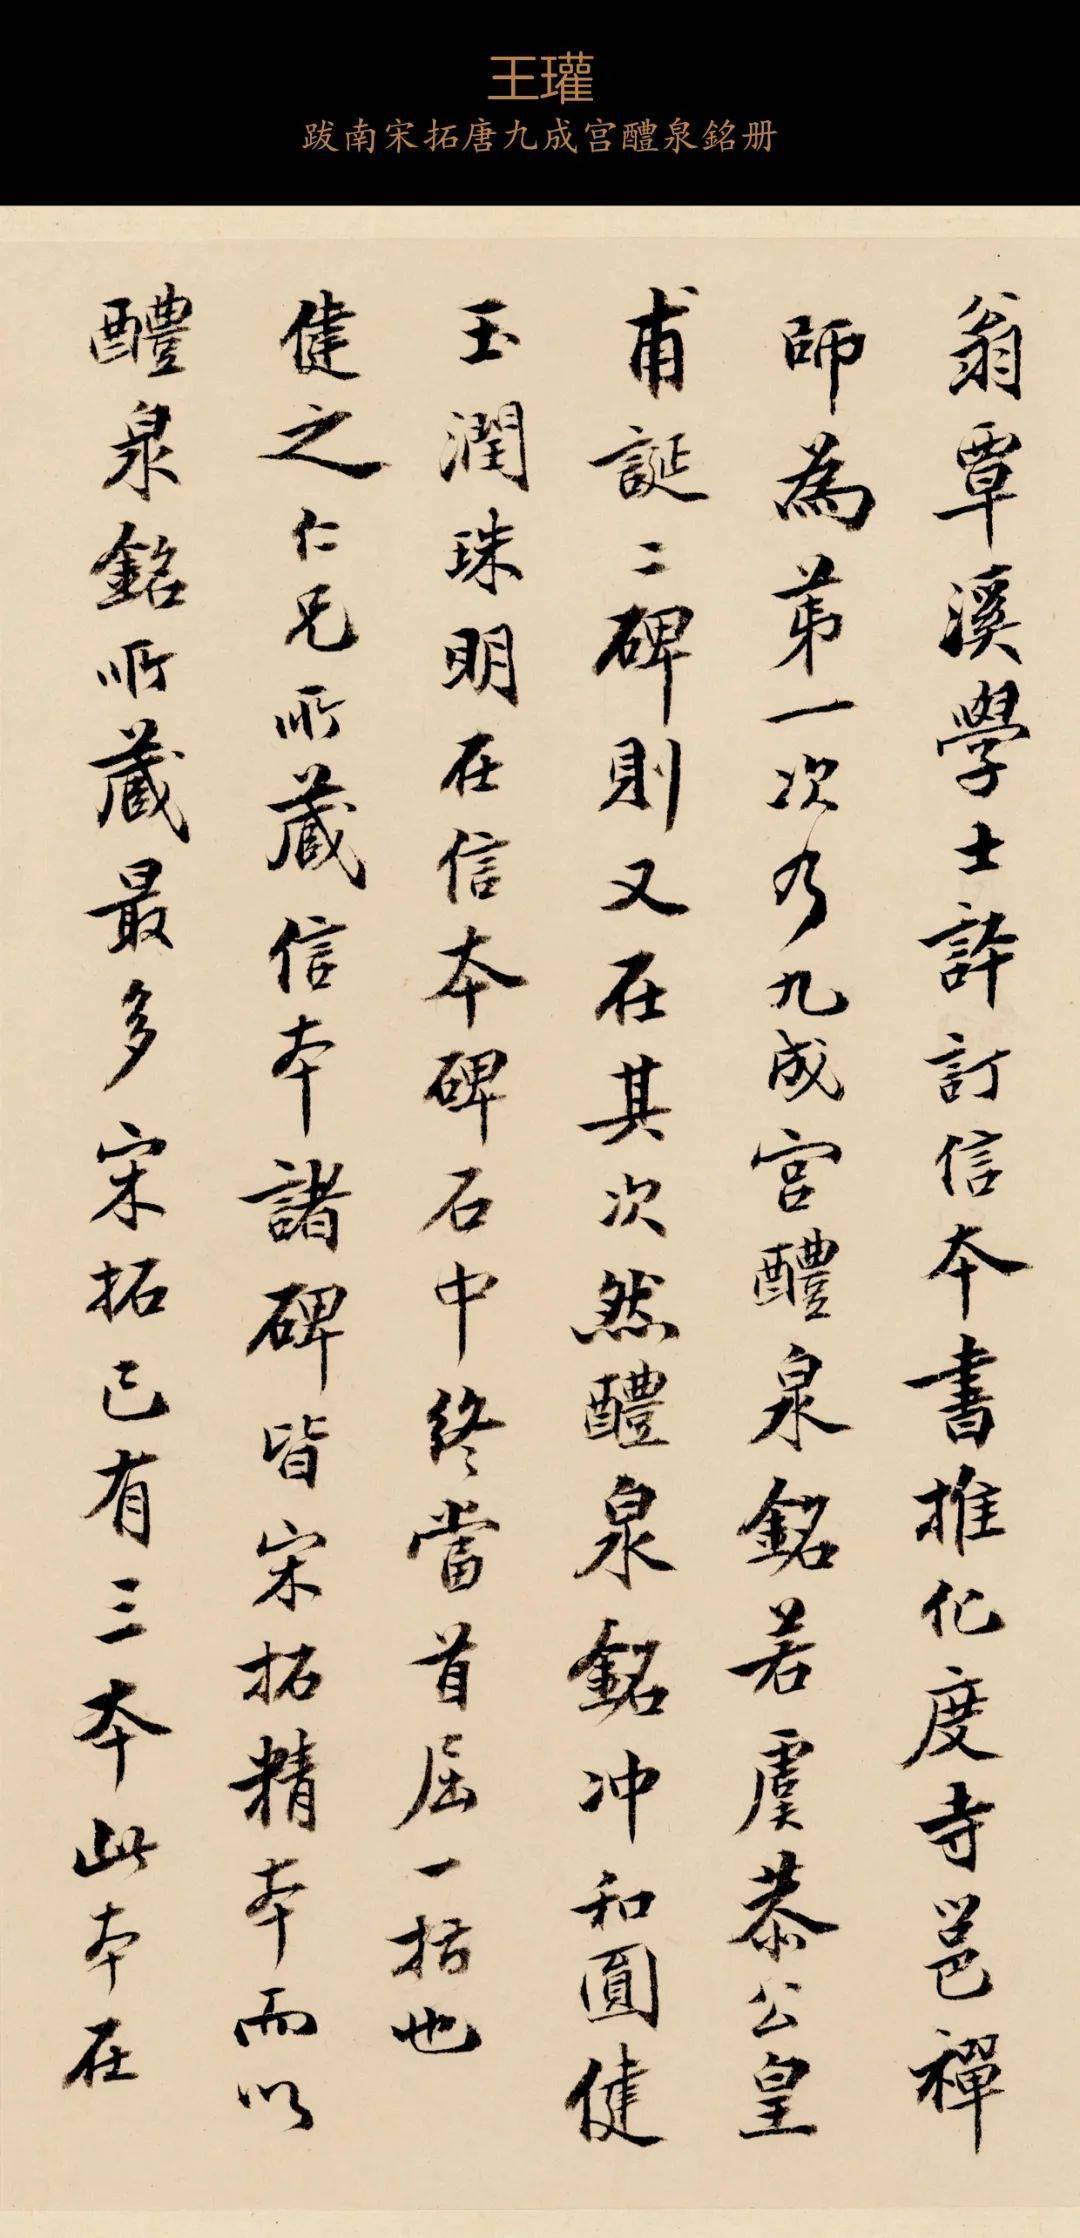 王瓘
跋南宋拓唐九成宫醴泉銘册
翁覃溪學士評訂信本書推化度寺邕禪
師為苐一次乃九成宮醴泉銘若虞恭公皇
甫誕二碑則又在其次然醴泉銘冲和圓健
玉潤珠明在信本碑石中終當首屈一指也
健之仁兄所藏信本諸碑皆宋拓精本而以
醴泉銘所藏最多宋拓已有三本此本在